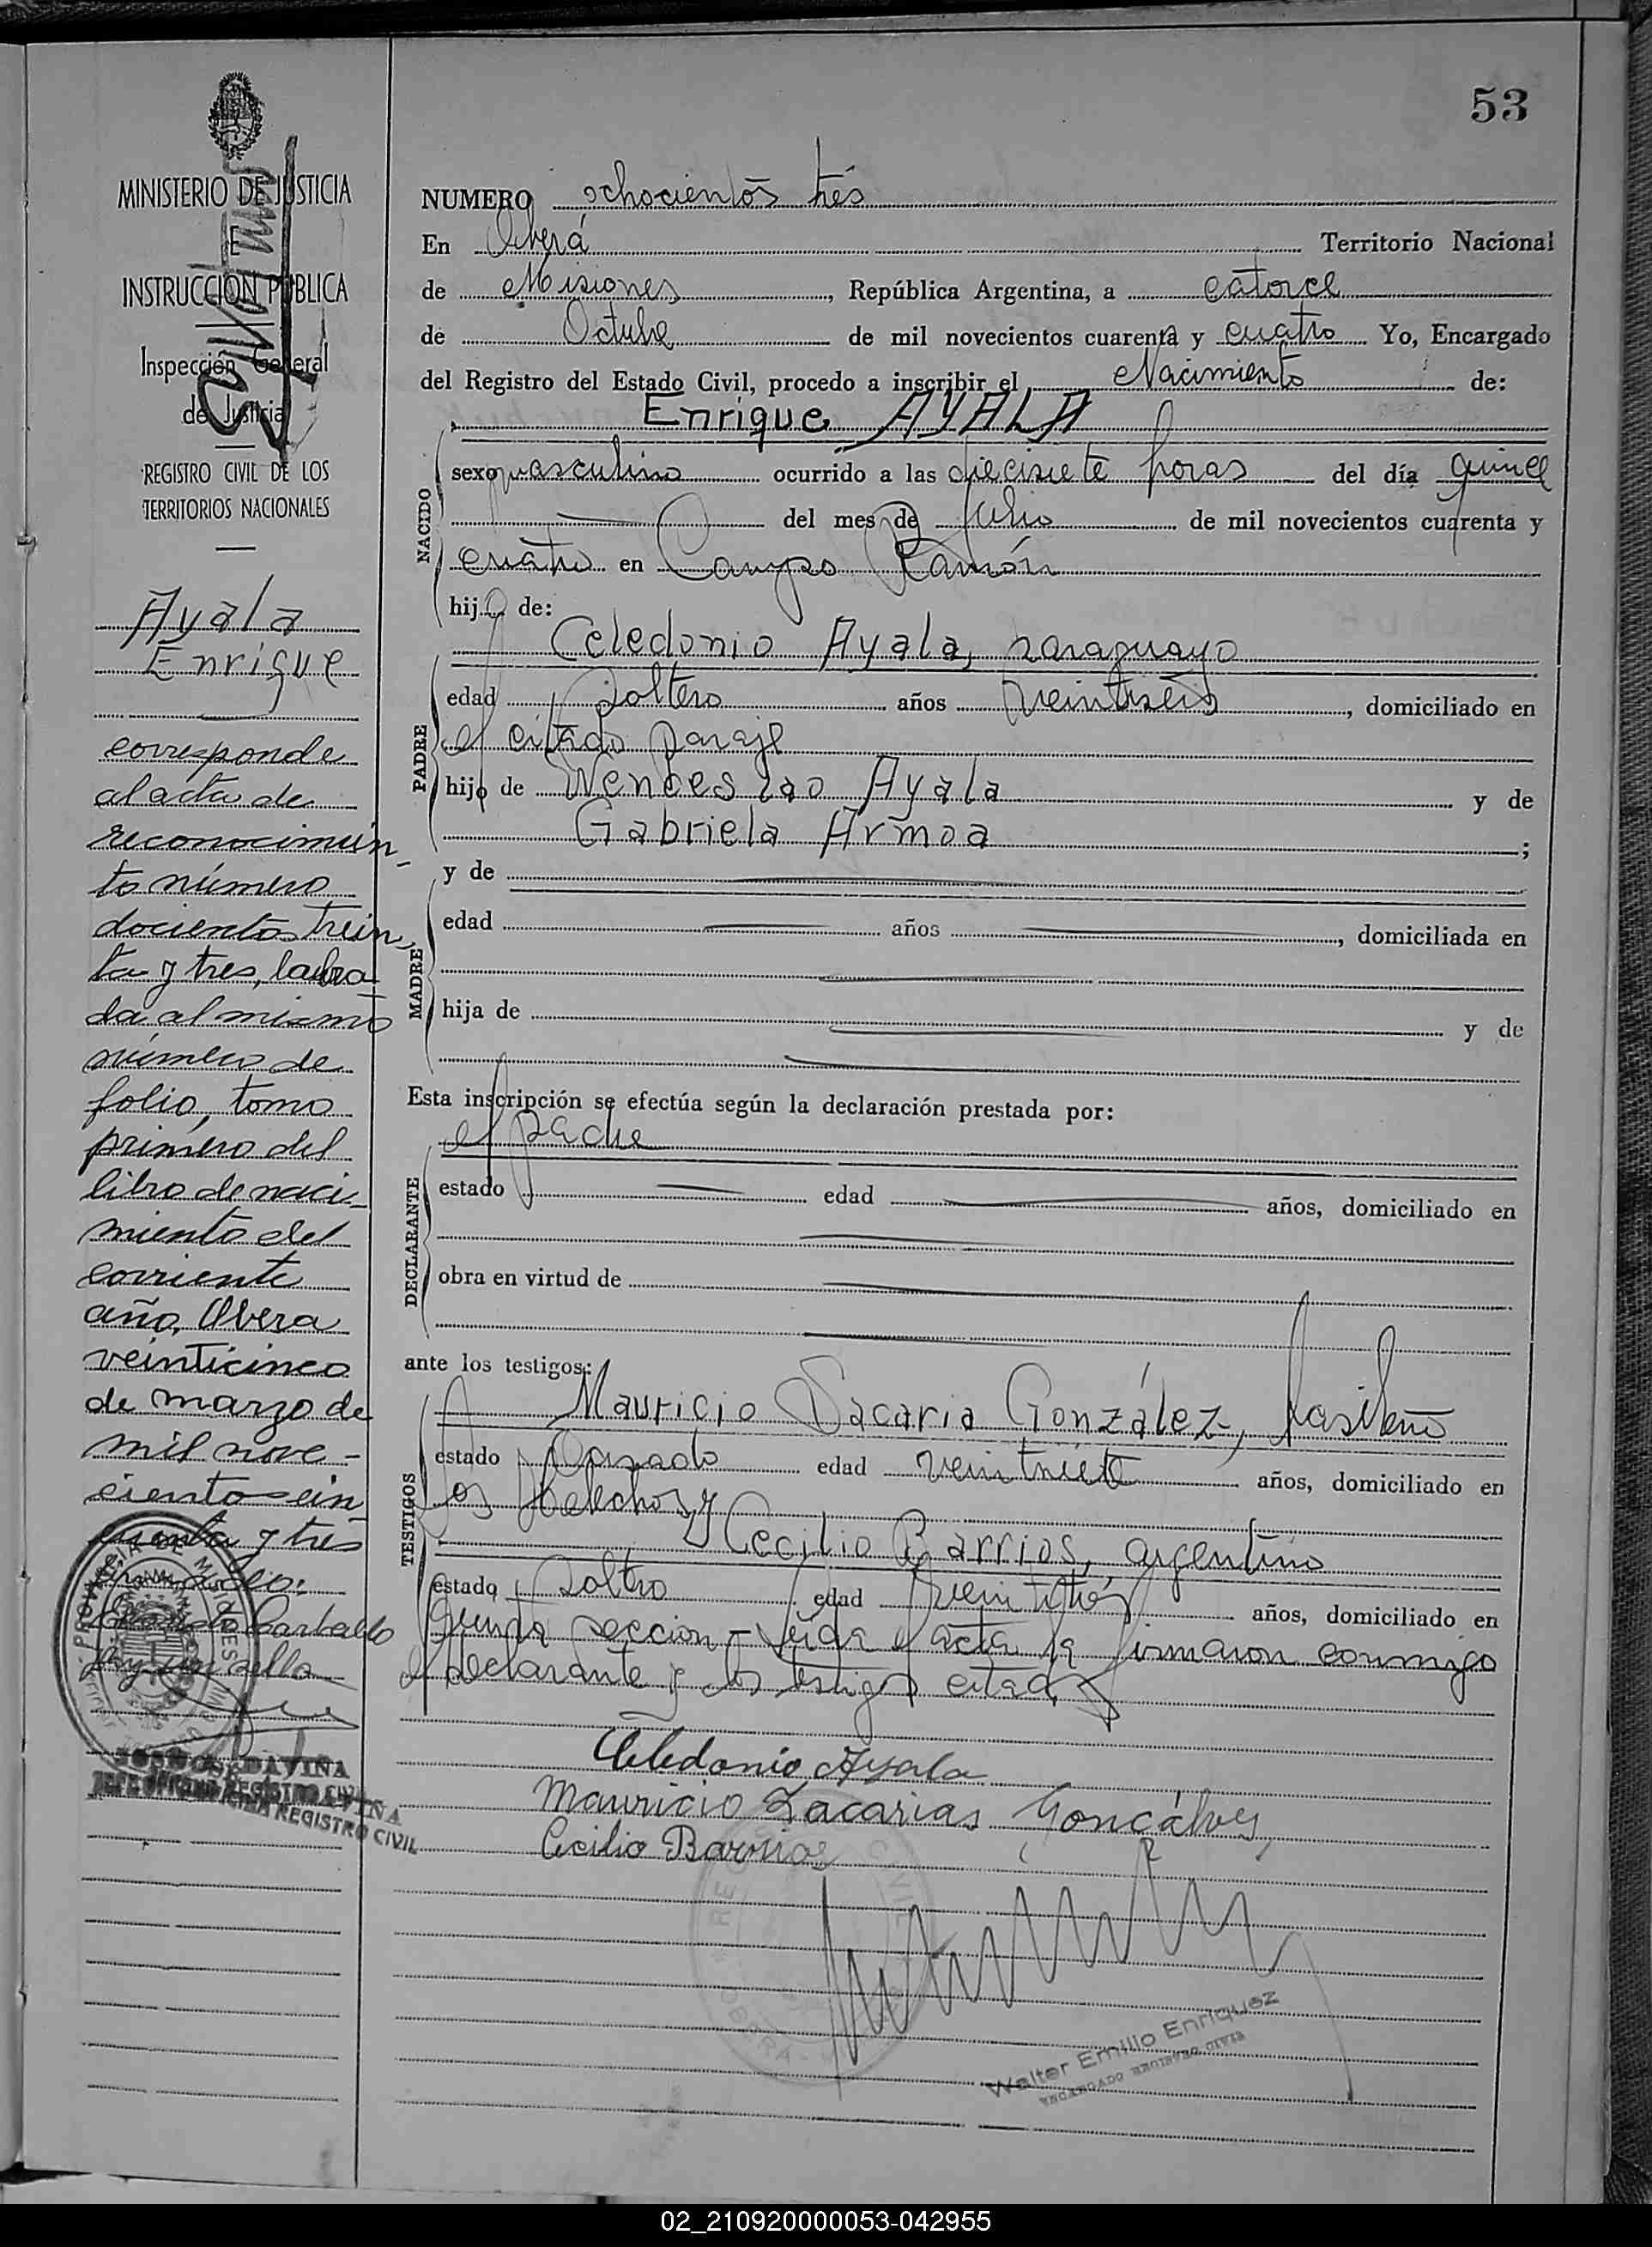 53
MINISTERIO DE JUSTICIA
E
INSTRUCCIÓN PÚBLICA
Inspección General
de Justicia
REGISTRO CIVIL DE LOS
TERRITORIOS NACIONALES
Ayala
Enrique
corresponde
al acta de
reconocimien-
to número
docientos trein
ta y tres, labra
da al mismo
número de
folio, tomo
primero del
libro de naci-
miento del
corriente
año, Obera
veinticinco
de marzo de
mil nove-
ciento cin
cuenta y tres
Carballo
sello
PROVINCIA DE MISIONES
REGISTRO CIVIL
NUMERO ochocientos trés
En Oberá Territorio Nacional
de Misiones, República Argentina, a catorce
de Octubre de mil novecientos cuarenta y cuatro Yo, Encargado
del Registro del Estado Civil, procedo a inscribir el Nacimiento de:
Enrique AYALA
NACIDO
sexo masculino ocurrido a las diecisiete horas del día quince
del mes de Julio de mil novecientos cuarenta y
cuatro en Campo Ramón
hijo de:
PADRE
Celedonio Ayala, paraguayo
edad soltero años veintiseis, domiciliado en
el citado paraje
hijo de Wenceslao Ayala y de
Gabriela Armoa;
MADRE
y de
edad años, domiciliada en
hija de y de
Esta inscripción se efectúa según la declaración prestada por:
DECLARANTE
el padre
estado edad años, domiciliado en
obra en virtud de
ante los testigos:
TESTIGOS
Mauricio Sacaria González, brasileño
estado casado edad veintisiete años, domiciliado en
Los Helechos y
Cecilio Barrios, argentino
estado soltero edad años, domiciliado en
seccion - Leida el acta la firmaron conmigo
el declarante y los testigos citados
Celedonio Ayala
Mauricio Zacarias Goncálves
Cecilio Barrios
Walter Emilio Enriquez
ENCARGADO REGISTRO CIVIL
02_210920000053-042955